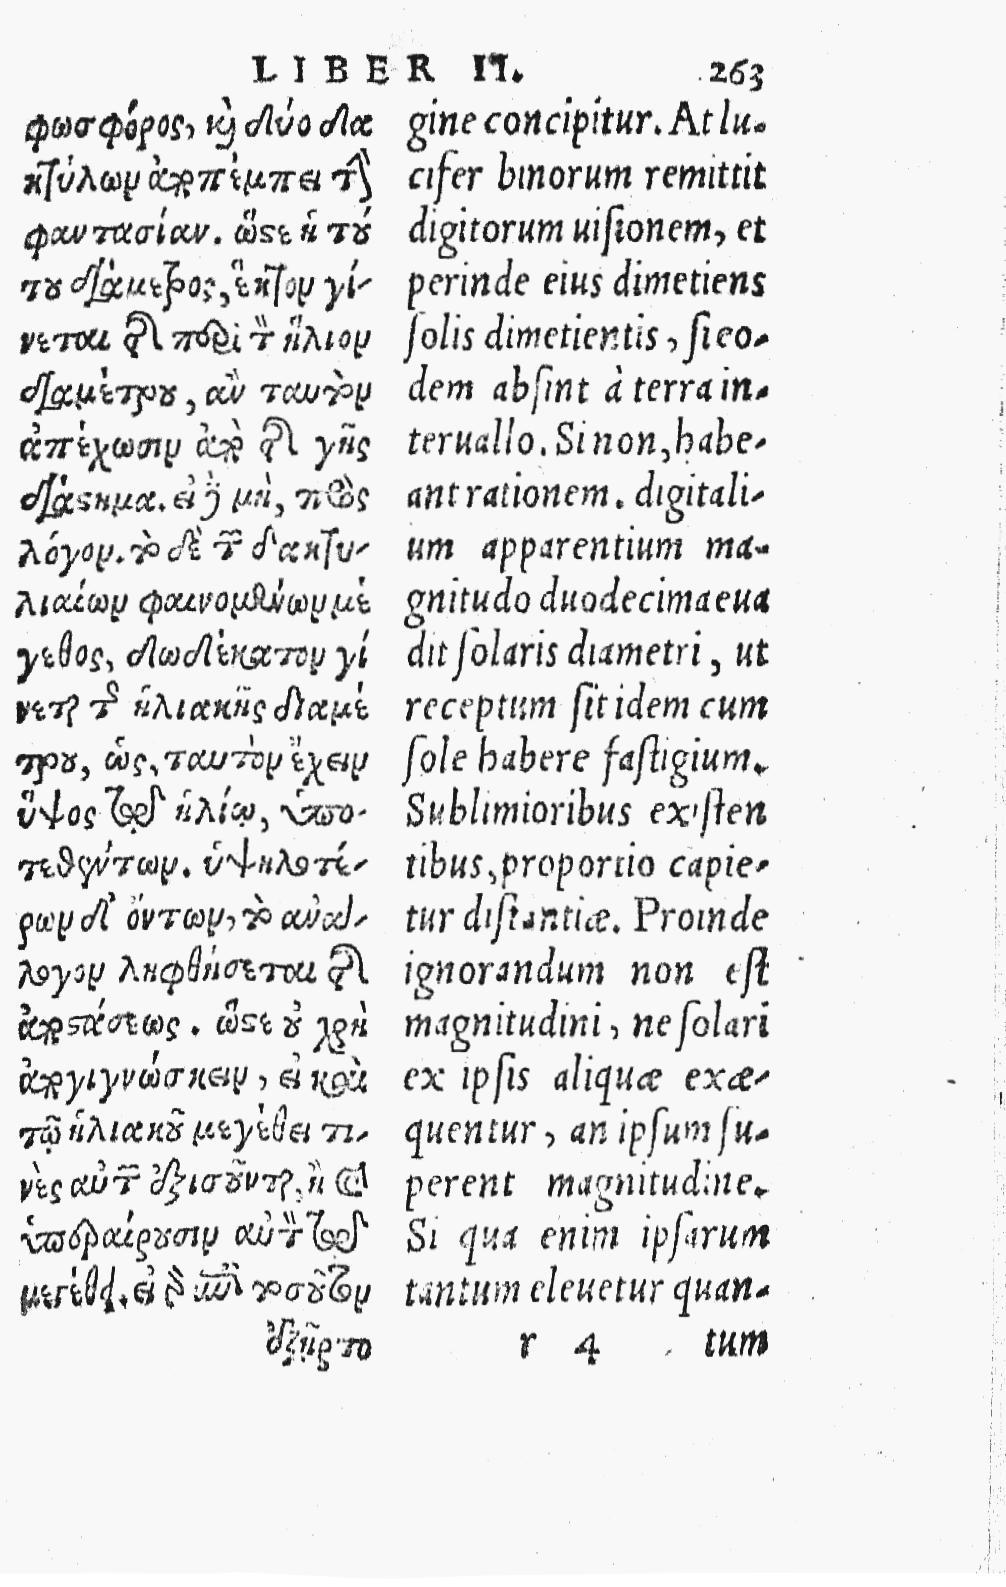 LIBER II. 263
φωσφόρος, καὶ δύο δα
κτύλων ἀποπέμπει τὴν
φαντασίαν. ὥστε ἡ τού
του διάμετρος, ἕκτον γί-
νεται τῆς περὶ τὸν ἥλιον
διαμέτρου, ἂν ταυτὸν
ἀπέχωσιν ἀπὸ τῆς γῆς
διάστημα. εἰ δὲ μὴ, πρὸς
λόγον. τὸ δὲ τῶν δακτυ-
λιαίων φαινομένων μέ
γεθος, δωδέκατον γί
νεται τῆς ἡλιακῆς διαμέ
τρου, ὡς, ταυτὸν ἔχειν
ὕψος τῷ ἡλίῳ, ὑπο-
τεθέντων. ὑψηλοτέ-
ρων δ' ὄντων, τὸ ἀνά-
λογον ληφθήσεται τῆς
ἀποστάσεως. ὥστε οὐ χρὴ
ἀπογιγνώσκειν, εἰ καὶ
τῷ ἡλιακοῦ μεγέθει τι-
νὲς αὐτῶν ἐξισοῦνται, ἢ καὶ
ὑπεραίρουσιν αὐτὸν τῷ
μεγέθει. εἰ γὰρ τοσοῦτον
ἐξῇρτο
gine concipitur. At lu-
cifer binorum remittit
digitorum uisionem, et
perinde eius dimetiens
solis dimetientis, si eo-
dem absint à terra in-
teruallo. Si non, habe-
ant rationem. digitali-
um apparentium ma-
gnitudo duodecima eua
dit solaris diametri, ut
receptum sit idem cum
sole habere fastigium.
Sublimioribus existen
tibus, proportio capie-
tur distantiæ. Proinde
ignorandum non est
magnitudini, ne solari
ex ipsis aliquæ exæ-
quentur, an ipsum su-
perent magnitudine.
Si qua enim ipsarum
tantum eleuetur quan-
r 4 tum